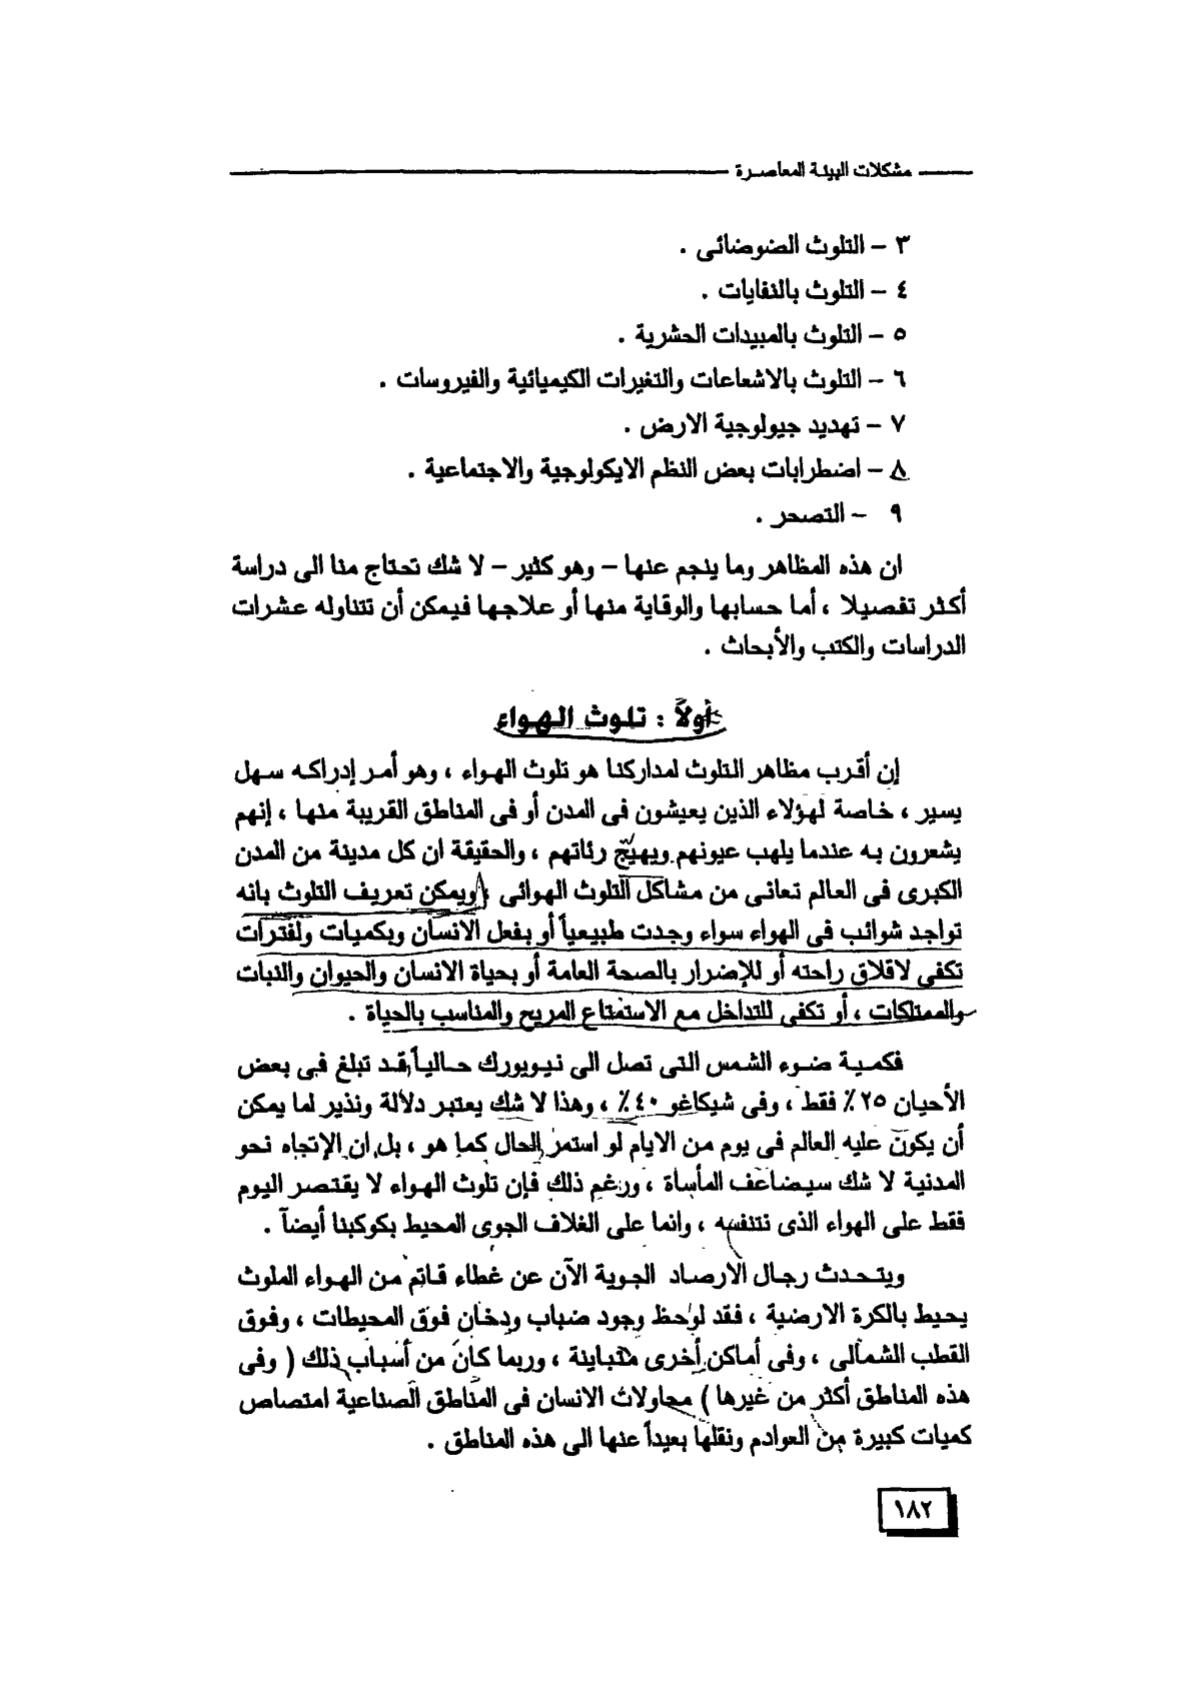 مشكلات البيئة المعاصرة
٣ – التلوث الضوضائى .
٤ – التلوث بالنفايات .
٥ – التلوث بالمبيدات الحشرية .
٦ – التلوث بالاشعاعات والتغيرات الكيميائية والفيروسات .
٧ – تهديد جيولوجية الارض .
٨ – اضطرابات بعض النظم الايكولوجية والاجتماعية .
٩ – التصحر .
ان هذه المظاهر وما ينجم عنها – وهو كثير – لا شك تحتاج منا الى دراسة
أكثر تفصيلا ، أما حسابها والوقاية منها أو علاجها فيمكن أن تتناوله عشرات
الدراسات والكتب والأبحاث .
أولاً : تلوث الهواء
إن أقرب مظاهر التلوث لمداركنا هو تلوث الهواء ، وهو أمر إدراكه سهل
يسير ، خاصة لهؤلاء الذين يعيشون فى المدن أو فى المناطق القريبة منها ، إنهم
يشعرون به عندما يلهب عيونهم ويهيّج رئاتهم ، والحقيقة ان كل مدينة من المدن
الكبرى فى العالم تعانى من مشاكل التلوث الهوائى ويمكن تعريف التلوث بانه
تواجد شوائب فى الهواء سواء وجدت طبيعياً أو بفعل الانسان وبكميات ولفترات
تكفى لاقلاق راحته أو للإضرار بالصحة العامة أو بحياة الانسان والحيوان والنبات
والممتلكات ، أو تكفى للتداخل مع الاستمتاع المريح والمناسب بالحياة .
فكمية ضوء الشمس التى تصل الى نيويورك حالياً قد تبلغ فى بعض
الأحيان ٢٥٪ فقط ، وفى شيكاغو ٤٠٪ ، وهذا لا شك يعتبر دلالة ونذير لما يمكن
أن يكون عليه العالم فى يوم من الايام لو استمر الحال كما هو ، بل ان الإتجاه نحو
المدنية لا شك سيضاعف المأساة ، ورغم ذلك فإن تلوث الهواء لا يقتصر اليوم
فقط على الهواء الذى نتنفسه ، وانما على الغلاف الجوى المحيط بكوكبنا أيضاً .
ويتحدث رجال الارصاد الجوية الآن عن غطاء قاتم من الهواء الملوث
يحيط بالكرة الارضية ، فقد لوحظ وجود ضباب ودخان فوق المحيطات ، وفوق
القطب الشمالى ، وفى أماكن أخرى متباينة ، وربما كان من أسباب ذلك ( وفى
هذه المناطق أكثر من غيرها ) محاولات الانسان فى المناطق الصناعية امتصاص
كميات كبيرة من العوادم ونقلها بعيداً عنها الى هذه المناطق .
١٨٢